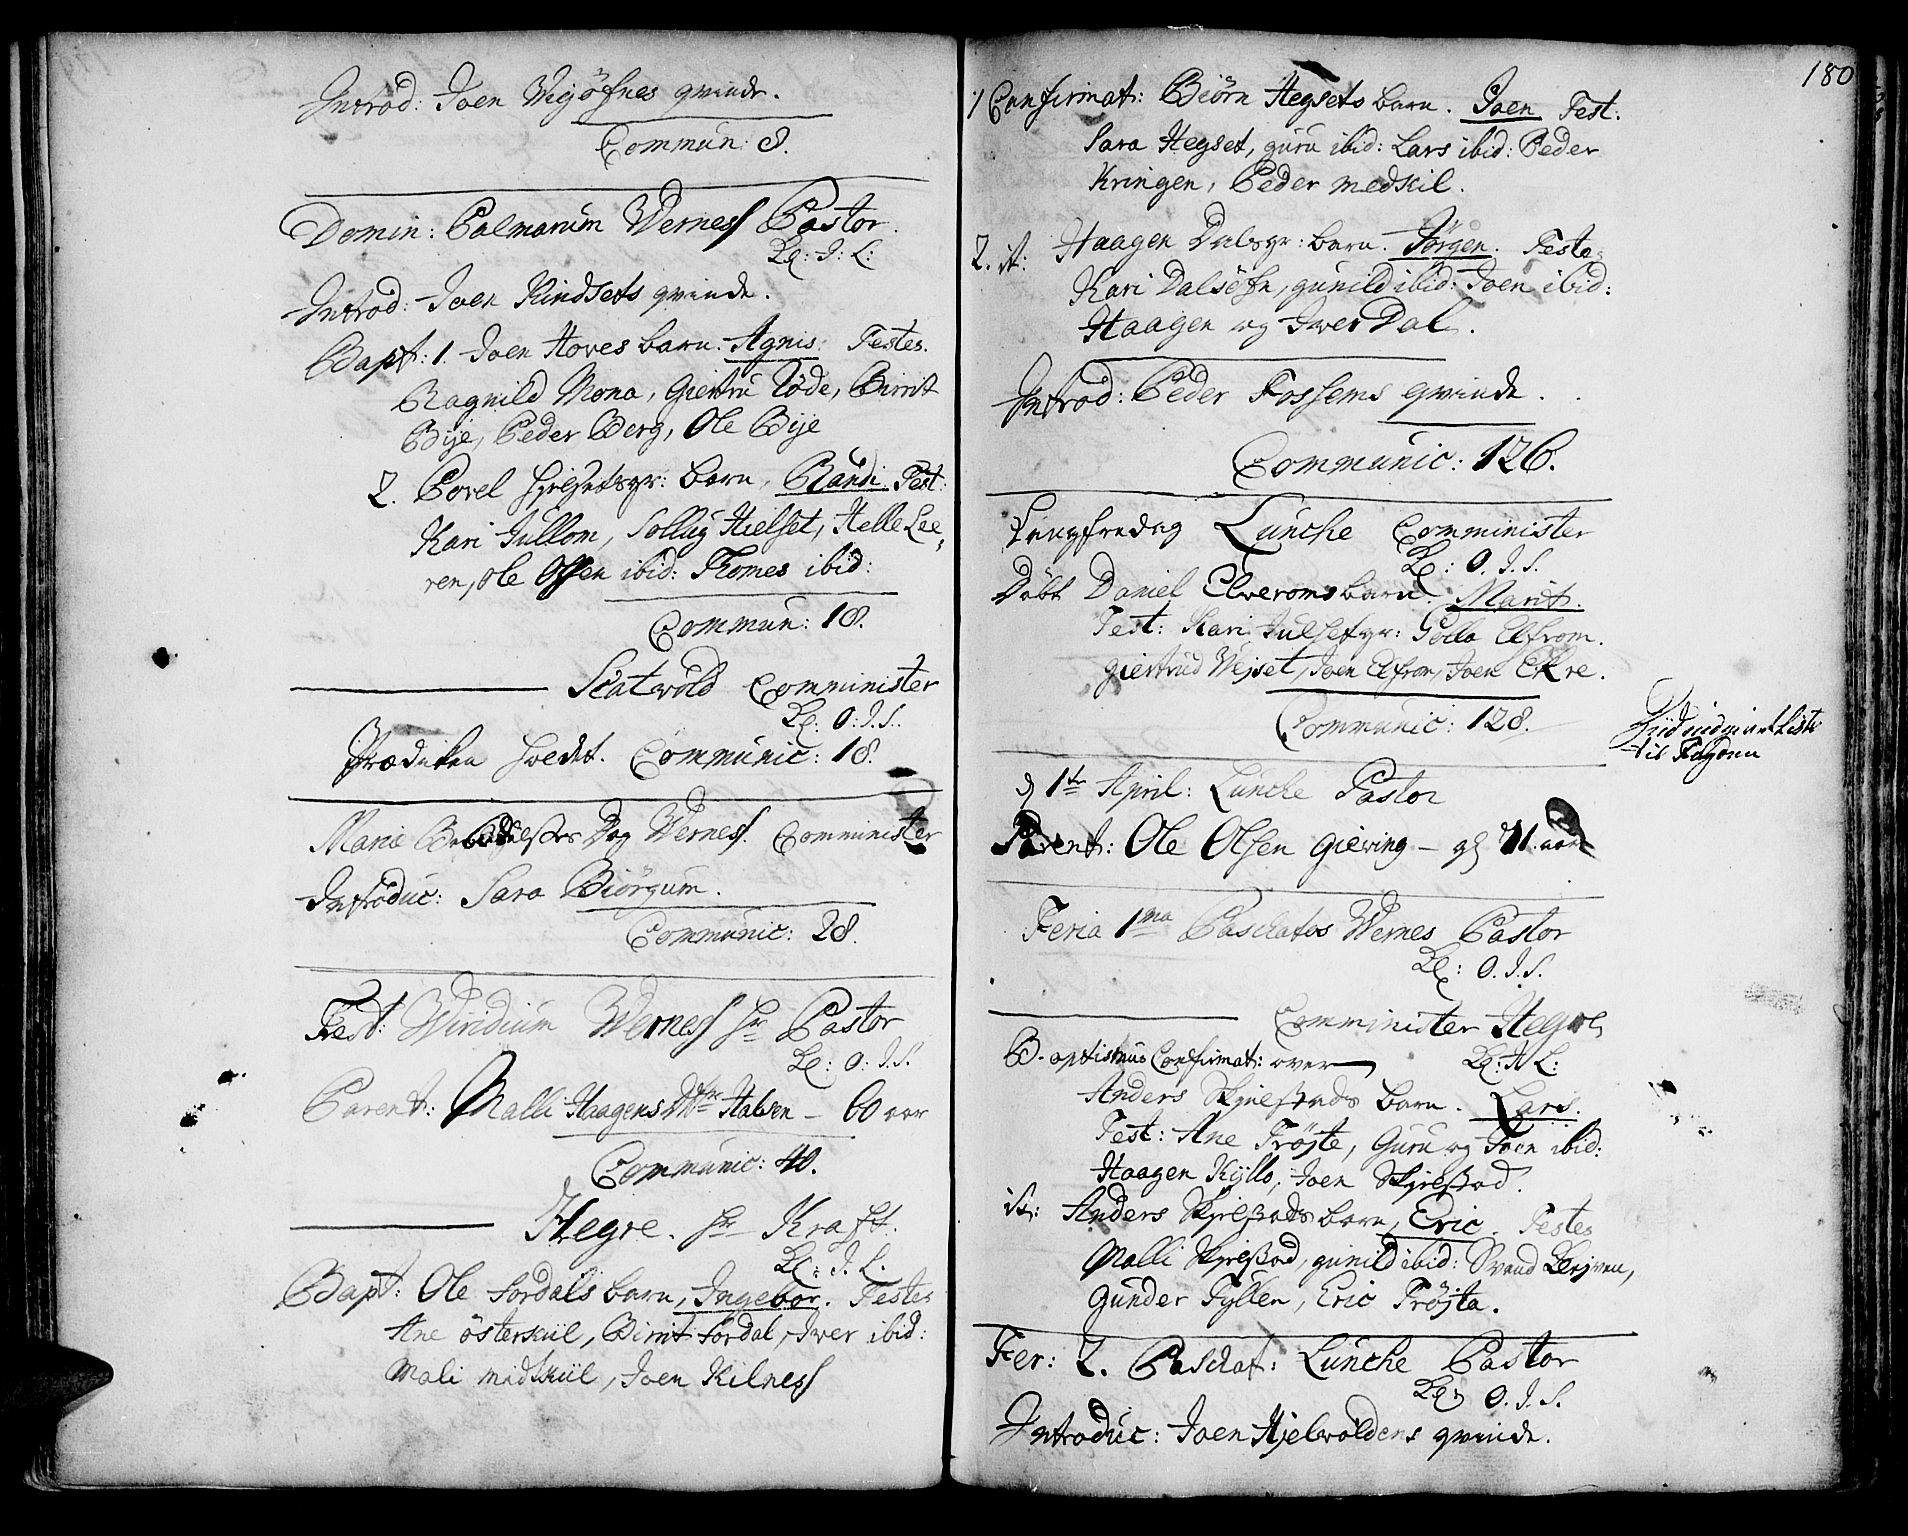 Introd: Joen Mejöfnes qvinde.
Commun: 8.
Domin: Palmarum Werness Pastor.
Introd: Joen Rindsets qvinde.
Bapt: 1. Joen Hoves barn. Agnis. Testes.
Ragnild Mona, Giertru Röde, Birrit
Bije, Peder Berg, Ole Bije
2. Povel Hielsetsgr: barn, Randi. Test:
Kari Jullom, Sollug Hielset, Helle Lee-
ren, Ole Olsen ibid: Thomes ibid:
Commun: 18.
Scatvold Comminister
O: I. S.
Prædiken holdt. Communic: 18.
Mariæ Dag Werness. Comminister
Introduc: Sara Biörgum.
Communic: 28.
Fest: Viridium Werness hr Pastor
O: I. S.
Parent: Malli Haagens Dtr Halsen – 60 aar
Communic: 40.
Hegre. hr Kraft.
Bapt: Ole Fordals barn, Ingebor. Testes
Ane österkiil, Birrit Fordal, Iver ibid:
Mali midtkiil, Joen Kilness
180
1 Confirmat: Biörn Hegsets barn. Joen Test:
Sara Hegset, guru ibid: Lars ibid: Peder
Kringen, Peder medkil.
2. it: Haagen Dalsgr: barn. Jörgen. Testes
Kari Dalsöfn, gunild ibid: Joen ibid:
Haagen og Iver Dal.
Introd: Peder Fossems qvinde.
Communic: 126.
Langfredag Lunche Comminister
O. I. S.
Döbt Daniel Elveroms barn. Marit.
Test: Kari Julsetgr: Elfrom.
giertrud Wejset, Joen Elfrom, Joen Ekre.
Communic: 128.
til Fogden
d 1te April: Lunche Pastor
Parent: Ole Olsen Gieving – gl 71. aar
Feria 1ma Paschatos Wernes Pastor
O. I. S.
Comminister Hegre
Baptismus Confirmat: over
Anders Skjelstads barn. Lars.
Test: Ane Tröjte, Guru og Joen ibid:
Haagen Kyllo, Joen Skjelstad.
it: Anders Skjelstads barn, Eric. Testes
Malli Skjelstad, gunild ibid: Svend
Gunder Fyllen, Eric Tröjta.
Fer: 2. Paschat: Lunche Pastor
O. I. S.
Introduc: Joen Hjelvoldens qvinde.